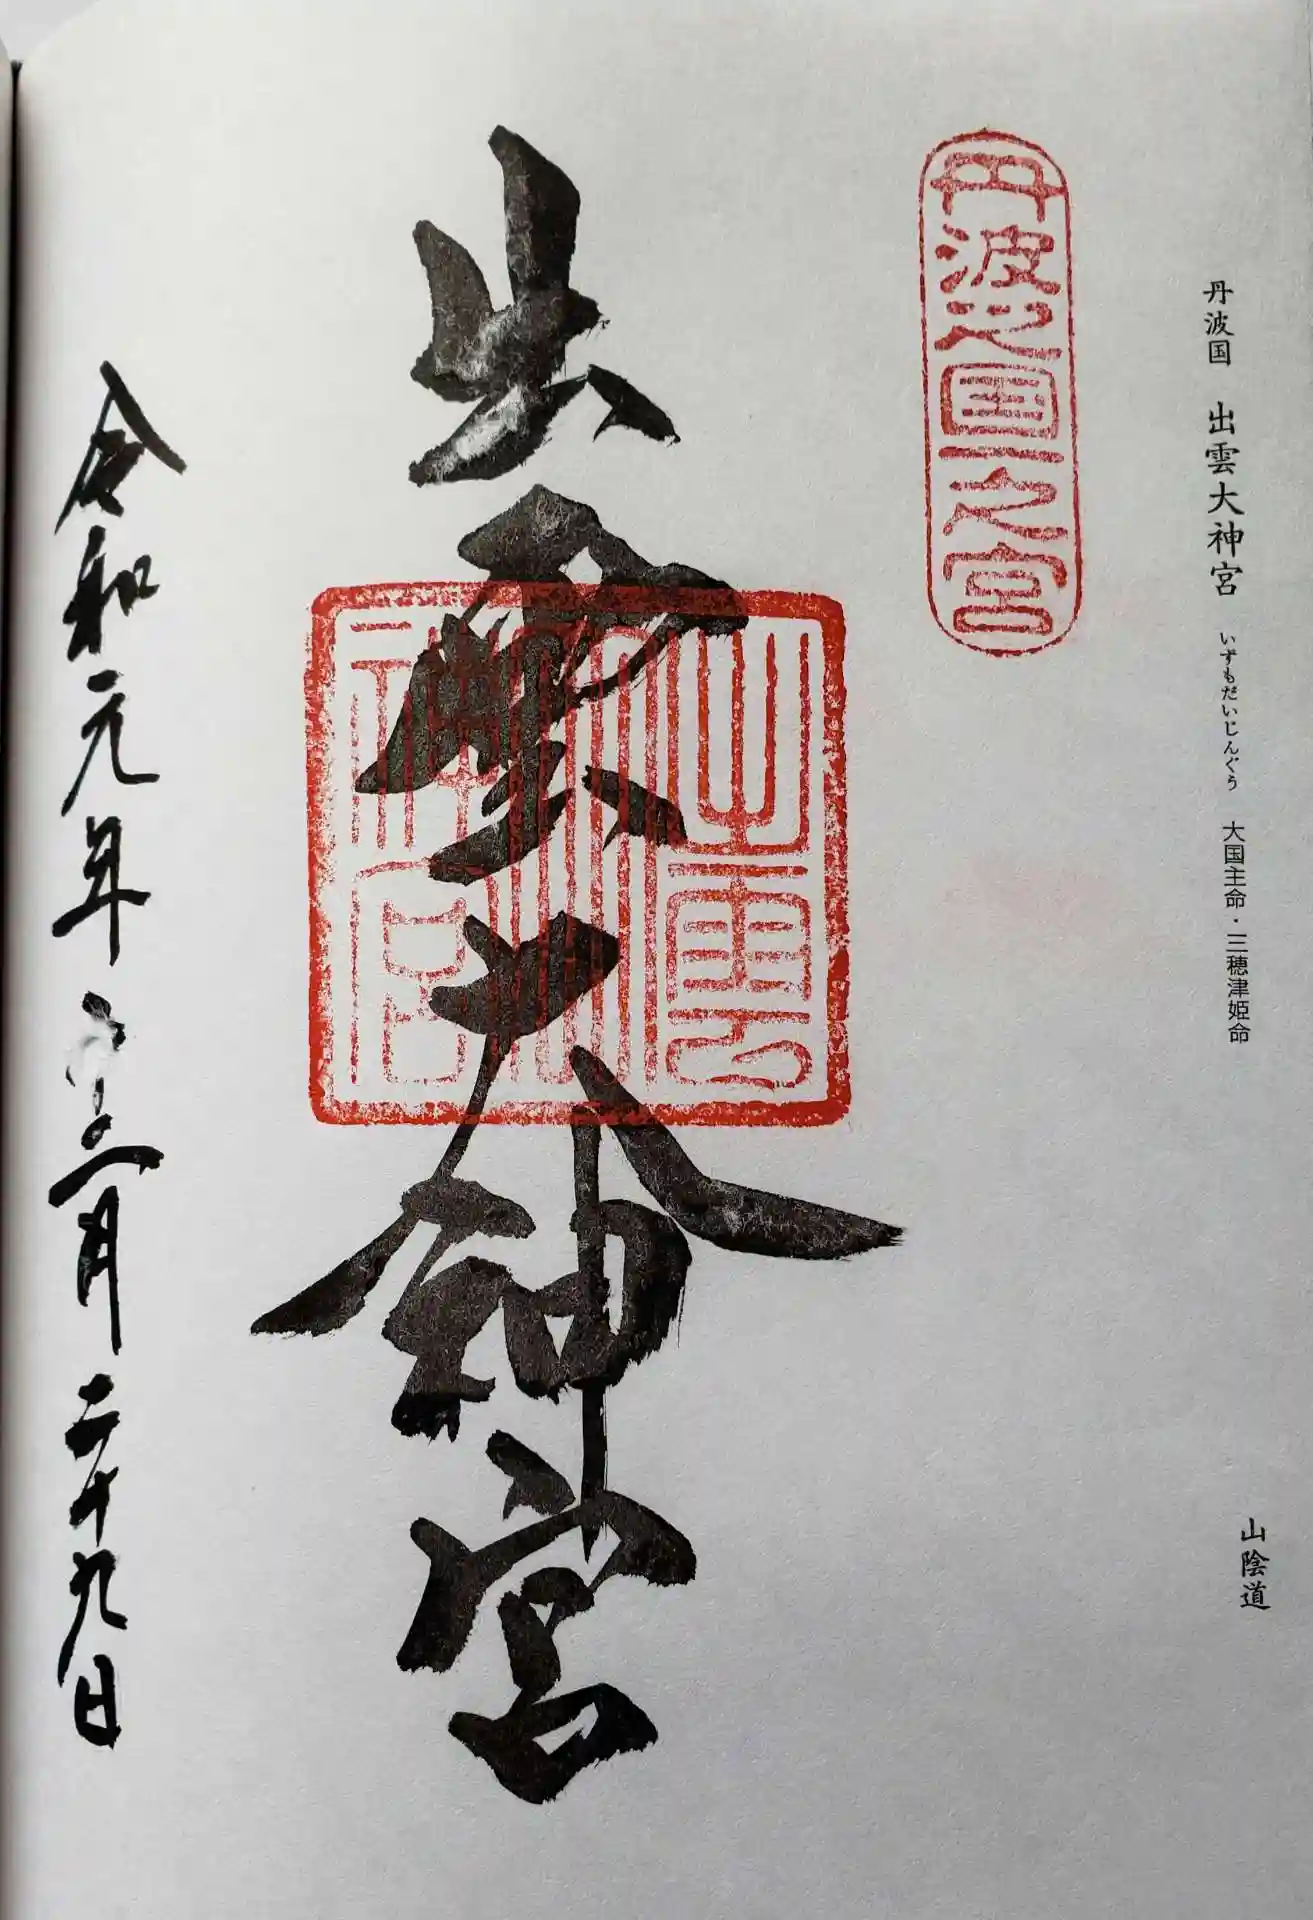 丹波国 出雲大神宮 いずもだいじんぐう 大国主命・三穂津姫命 山陰道
丹波之国一之宮
出雲大神宮
出雲
大
神宮
令和元年十二月二十九日